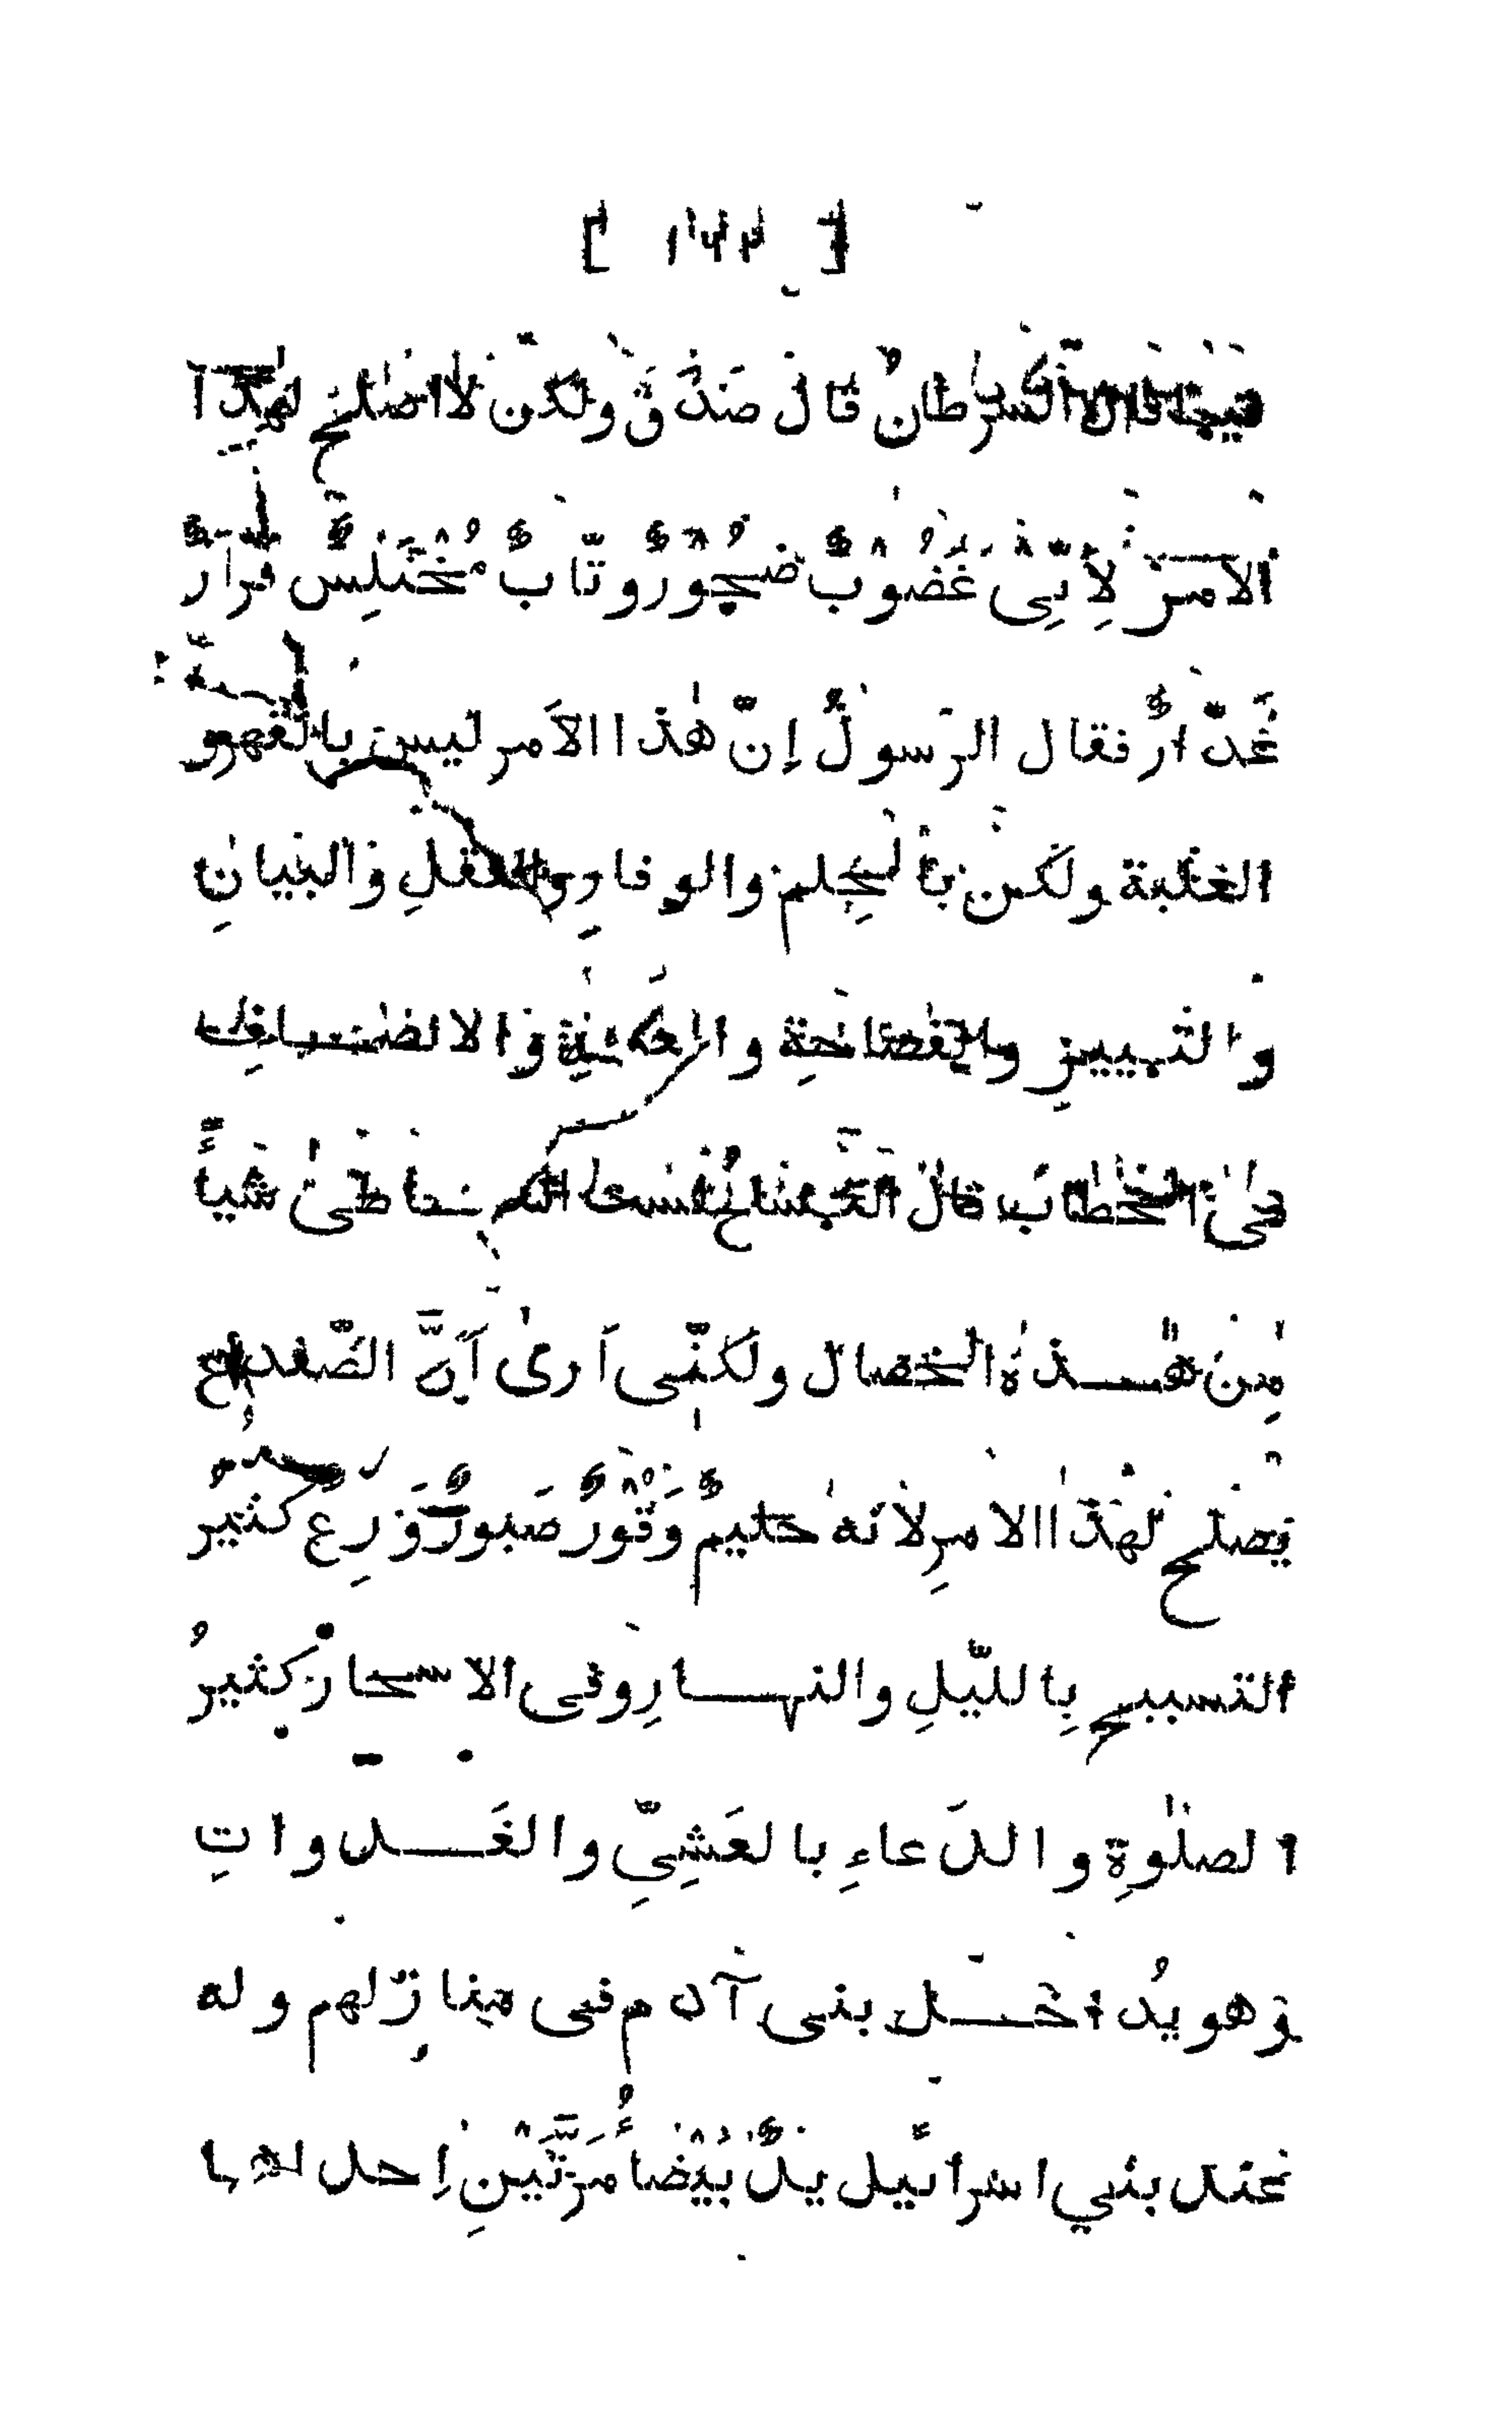 فيما قال السرطانُ قال صَدَقَ ولكن لا اصلح لهذا
الامر لِاَنِّى غَضُوبٌ ضجُورٌ وثّابٌ مُخْتَلِسٌ فرارٌ
غدّارٌ فقال الرّسولُ إنّ هٰذا الاَمر ليس بالقهرو
الغلبة ولكن بالحِلم والوقارِ والعقلِ والبيانِ
والتمييزِ والفصاحةِ و الانصافِ
فى الخطاب قال التمساحُ لستُ شياً
مِن هــذه الخصال ولكنّى اَرىٰ اَنَّ الضّفدع
يصلح لهذا الامرِ لانّهٰ حليمٌ وَقُوْرٌ صَبورٌ وَرِعٌ كثيرُ
التسبيح بِاللّيلِ والنهــارِ وفى الاسحار كثيرُ
الصلٰوةِ والدّعاءِ بالعَشِىِّ والغَــدواتِ
وهو يُداخــل بنى آدم فى منازلهم وله
عند بني اسرائيل يدٌ بَيْضاءُ مَرَّتَيْنِ اِحدٰهما